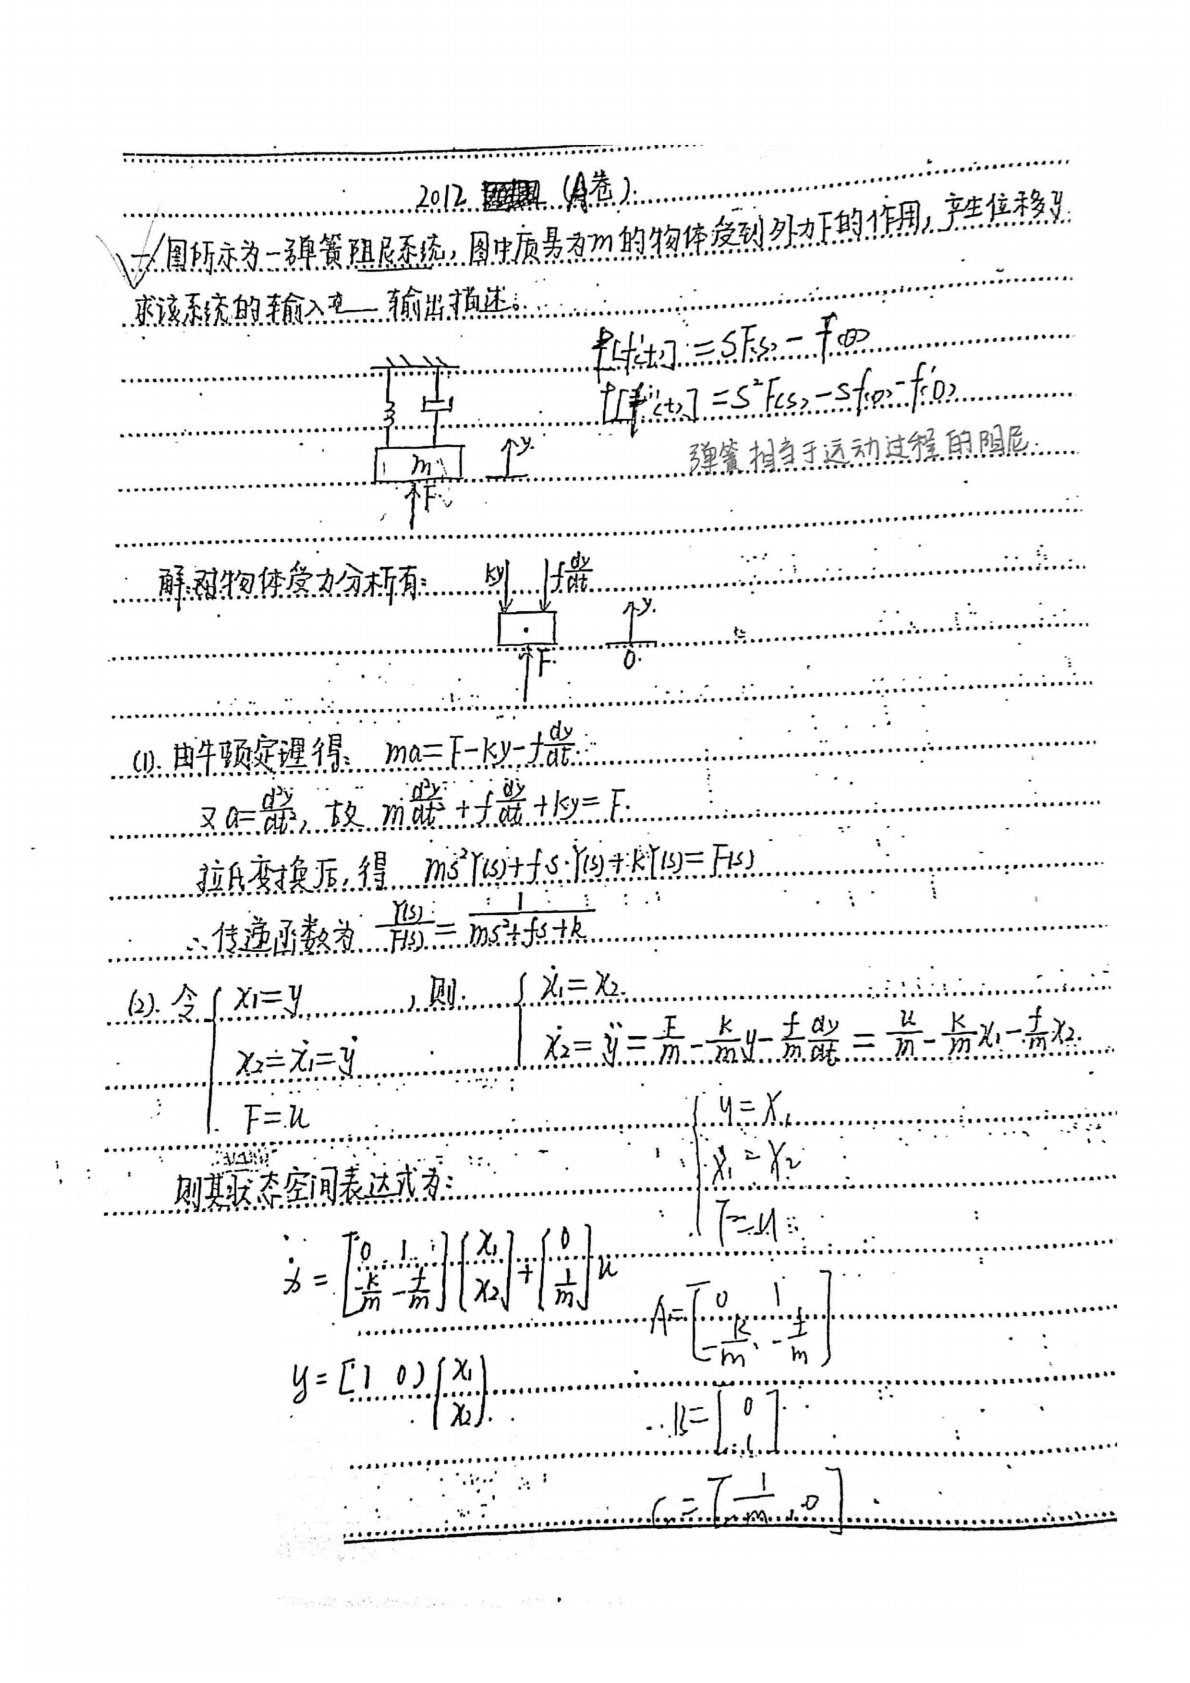 2012 (A卷).
一/图所示为一弹簧阻尼系统,图中质量为m的物体受到外力F的作用,产生位移y.
求该系统的输入 — 输出描述。
[f'(t)] = SF(s) - f(0)
[f''(t)] = S²F(s) - Sf(0) - f'(0)
弹簧相当于运动过程的阻尼.
m
y.
F
解:对物体受力分析有:
ky
f dy/dt
y.
F.
0.
(1). 由牛顿定理得: ma=F-ky-f dy/dt.
又a=d²y/dt², 故 m d²y/dt² + f dy/dt + ky = F.
拉氏变换后,得 ms²Y(s)+fs·Y(s)+kY(s)=F(s)
∴传递函数为 Y(s)/F(s) = 1/(ms²+fs+k)
(2). 令 { x₁=y , 则. { ẋ₁=x₂.
x₂=ẋ₁=ẏ
ẋ₂=ÿ=F/m - k/m y - f/m dy/dt = u/m - k/m x₁ - f/m x₂.
F=u
{ y=x₁
ẋ₁=x₂
F=u
则其状态空间表达式为:
ẋ = [0 1; -k/m -f/m] [x₁; x₂] + [0; 1/m] u
y = [1 0) [x₁; x₂].
A = [0 1; -k/m, -f/m]
B = [0; 1]
C = [1/m , 0]